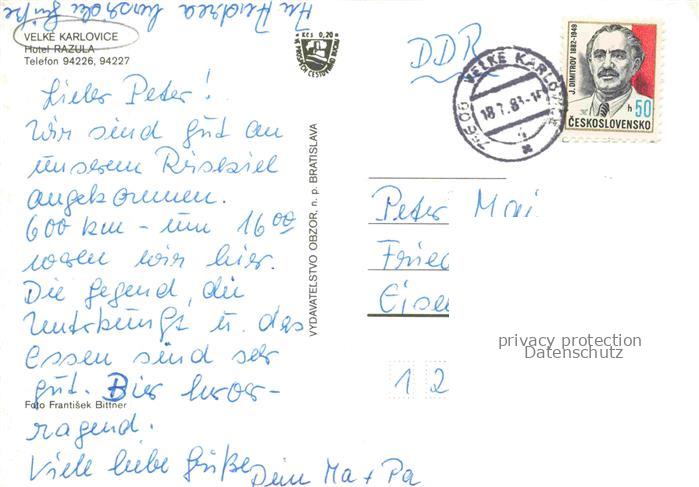 VELKE KARLOVICE
Hotel RAZULA
Telefon 94226, 94227
Kčs 0,20
Lieber Peter!
Wir sind gut an
unserem Reiseziel
angekommen.
600 km - um 16 00
waren wir hier.
Die Gegend, die
Unterkunft u. das
Essen sind sehr
gut. Bier hervor-
ragend.
Viele liebe Grüße Dein Ma + Pa
Foto František Bittner
VYDAVATEĽSTVO OBZOR, n. p. BRATISLAVA
DDR
VELKÉ KARLOVICE
18.7.83
J. DIMITROV 1882-1949
h 50
ČESKOSLOVENSKO
Peter
Fried
Eise
1 2
privacy protection
Datenschutz